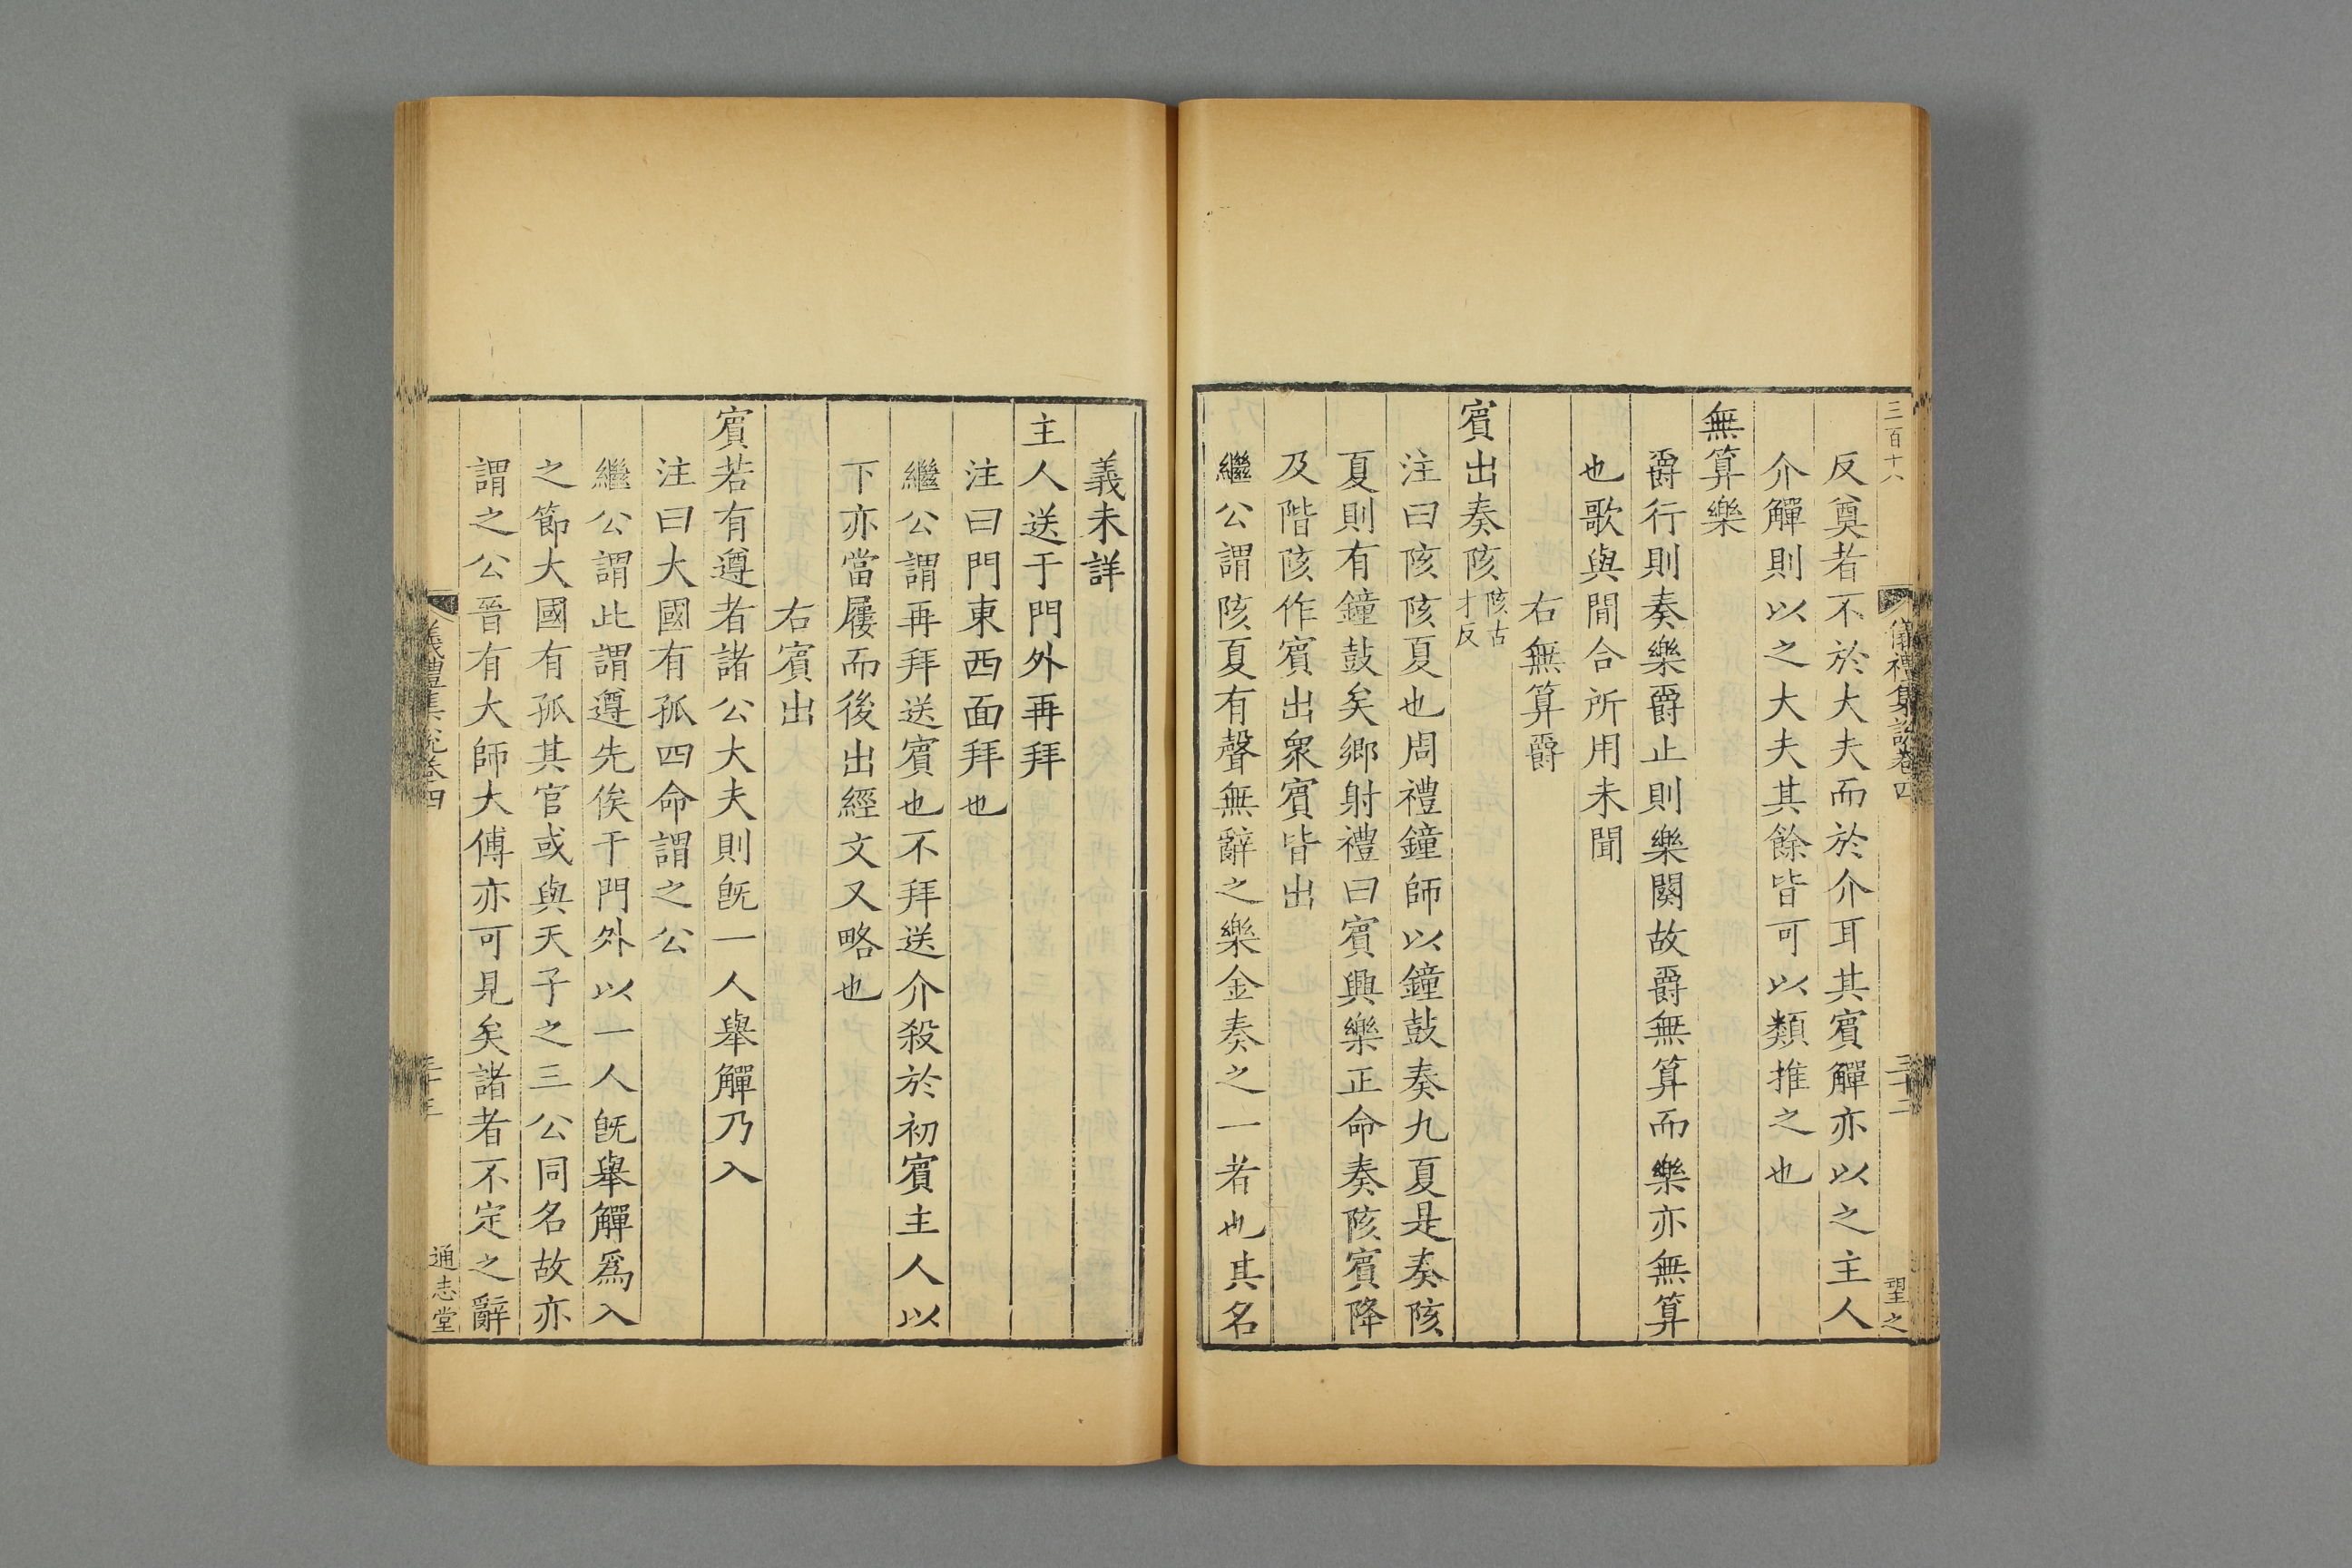 三百十八
儀禮集說卷四
三十二
望之
反奠者不於大夫而於介耳其賓觶亦以之主人
介觶則以之大夫其餘皆可以類推之也
無算樂
爵行則奏樂爵止則樂闋故爵無算而樂亦無算
也歌與閒合所用未聞
右無算爵
賓出奏陔陔古才反
注曰陔陔夏也周禮鐘師以鐘鼓奏九夏是奏陔
夏則有鐘鼓矣鄉射禮曰賓興樂正命奏陔賓降
及階陔作賓出衆賓皆出
繼公謂陔夏有聲無辭之樂金奏之一者也其名
義未詳
主人送于門外再拜
注曰門東西面拜也
繼公謂再拜送賓也不拜送介殺於初賓主人以
下亦當屨而後出經文又略也
右賓出
賓若有遵者諸公大夫則旣一人舉觶乃入
注曰大國有孤四命謂之公
繼公謂此謂遵先俟于門外以一人旣舉觶爲入
之節大國有孤其官或與天子之三公同名故亦
謂之公晉有大師大傅亦可見矣諸者不定之辭
儀禮集說卷四
通志堂